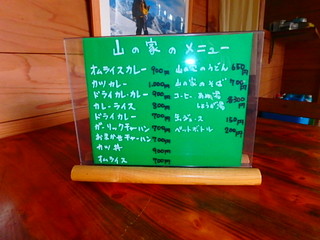 山の家のメニュー
オムライスカレー 900円
カツカレー 1,000円
ドライカレー
カレーライス 800円
ドライカレー 700円
ガーリックチャーハン 700円
おまかせチャーハン 700円
カツ丼 900円
オムライス 700円
山の家のうどん 650円
山の家のそば 700円
コーヒー
しょうが湯 300円
缶ジュース 150円
ペットボトル 200円